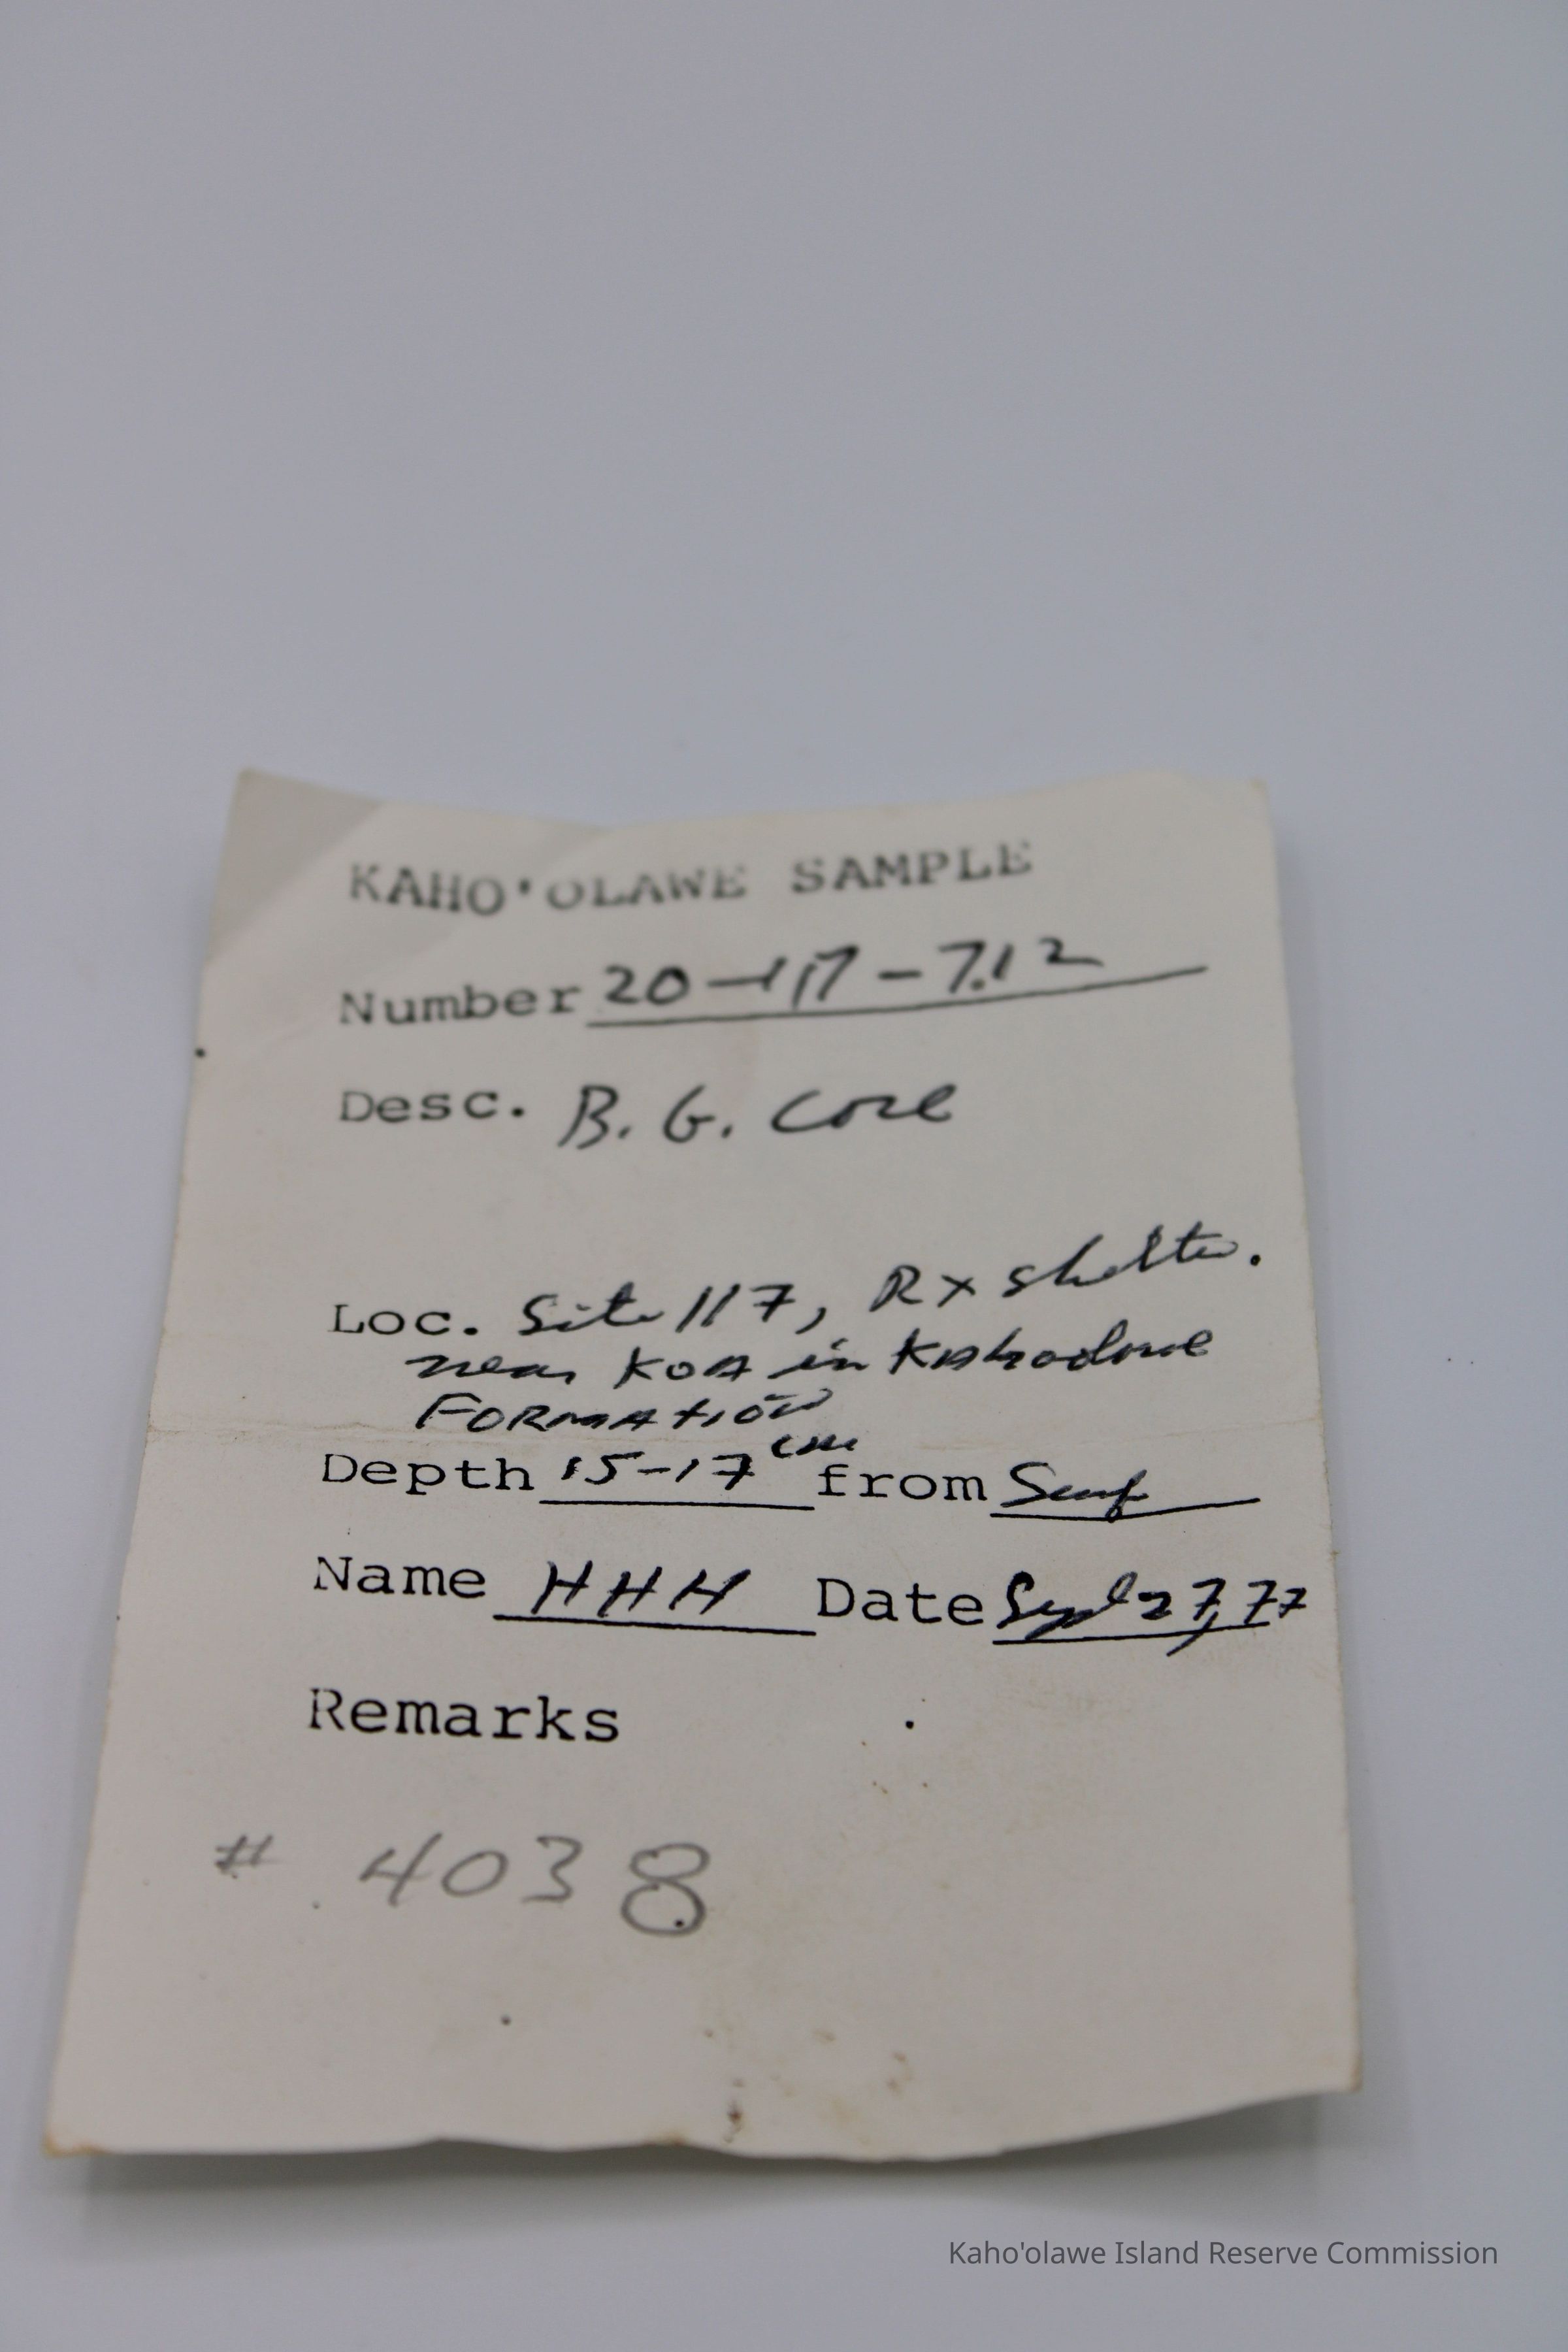 KAHO'OLAWE SAMPLE
Number 20-117-7.12
Desc. B. G. Core
Loc. Site 117, Rx shelter.
near KOA in
FORMATION
Depth 15-17 cm from Surf
Name HHH Date Sept 27, 77
Remarks
# 4038
Kaho'olawe Island Reserve Commission